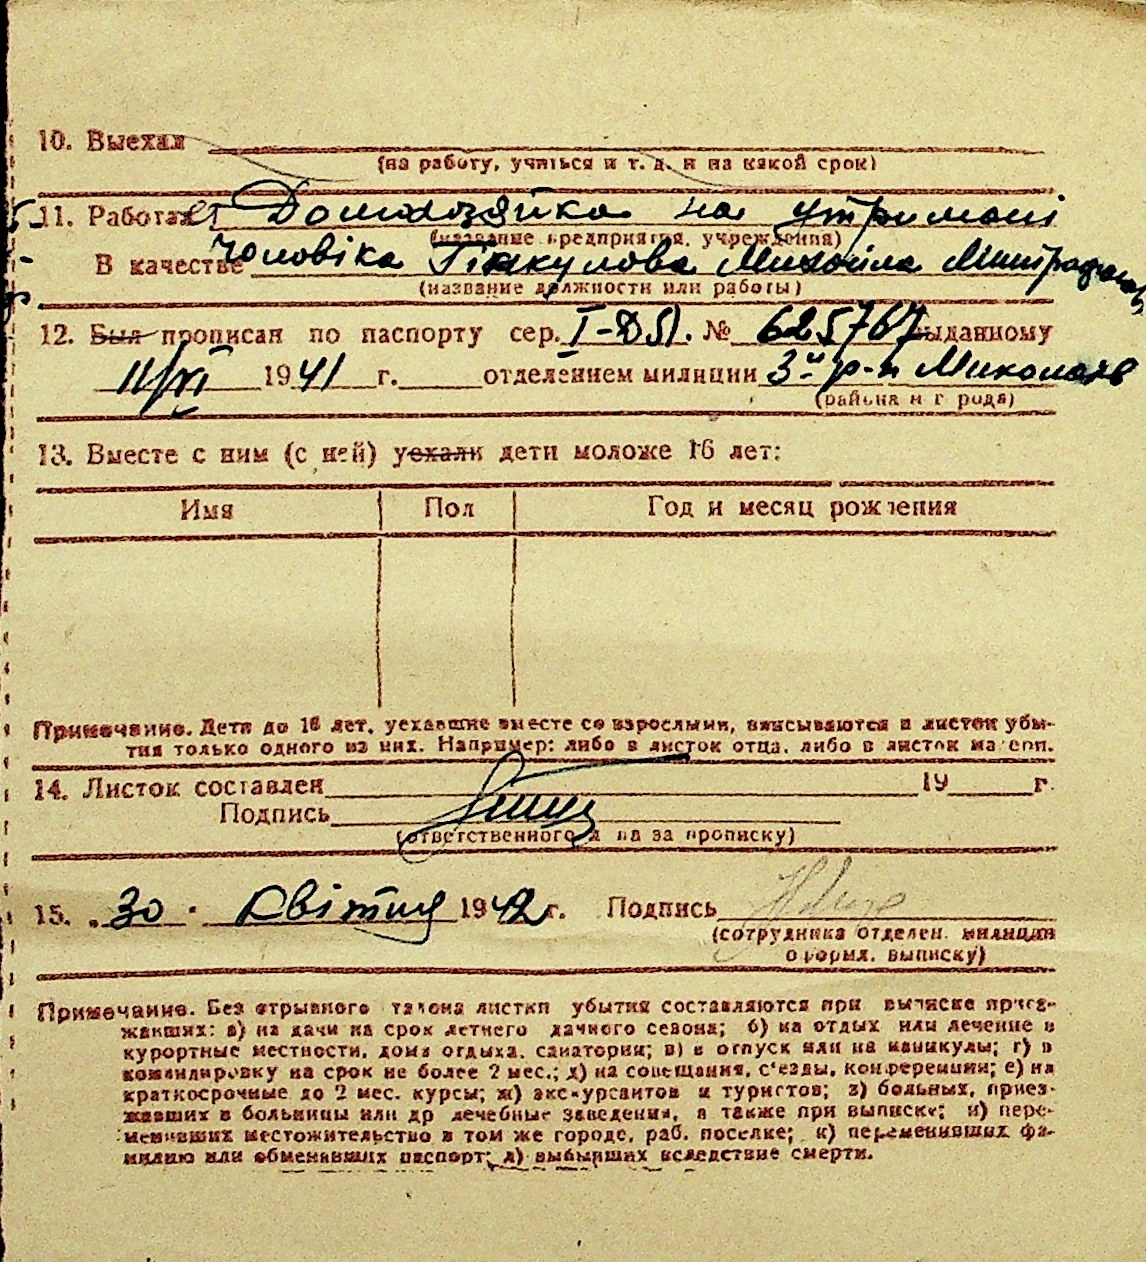 10. Выехал
(на работу, учиться и т. д. и на какой срок)
11. Работает Домохозяйка на утримані
(название предприятия, учреждения)
В качестве чоловіка Гінкулова Михайла
(название должности или работы)
12. Был прописан по паспорту сер. I-ДЯ. № 625767 выданному
11/VI 1941 г. отделением милиции 3й р-н Миколаїв
(района и города)
13. Вместе с ним (с ней) уехали дети моложе 16 лет:
Имя Пол Год и месяц рождения
Примечание. Дети до 16 лет, уехавшие вместе со взрослыми, вписываются в листок убы-
тия только одного из них. Например: либо в листок отца, либо в листок матери.
14. Листок составлен 19 г.
Подпись
(ответственного л на за прописку)
15. „30" Квітня 1942 г. Подпись
(сотрудника отделен. милиции
оформл. выписку)
Примечание. Без отрывного талона листки убытия составляются при выписке приез-
жавших: а) на дачи на срок летнего дачного сезона; б) на отдых или лечение в
курортные местности, дома отдыха, санатории; в) в отпуск или на каникулы; г) в
командировку на срок не более 2 мес.; д) на совещания, с'езды, конференции; е) на
краткосрочные до 2 мес. курсы; ж) экскурсантов и туристов; з) больных, приез-
жавших в больницы или др лечебные заведения, а также при выписке; и) пере-
менивших местожительство в том же городе, раб. поселке; к) переменивших фа-
милию или обменявших паспорт; л) выбывших вследствие смерти.